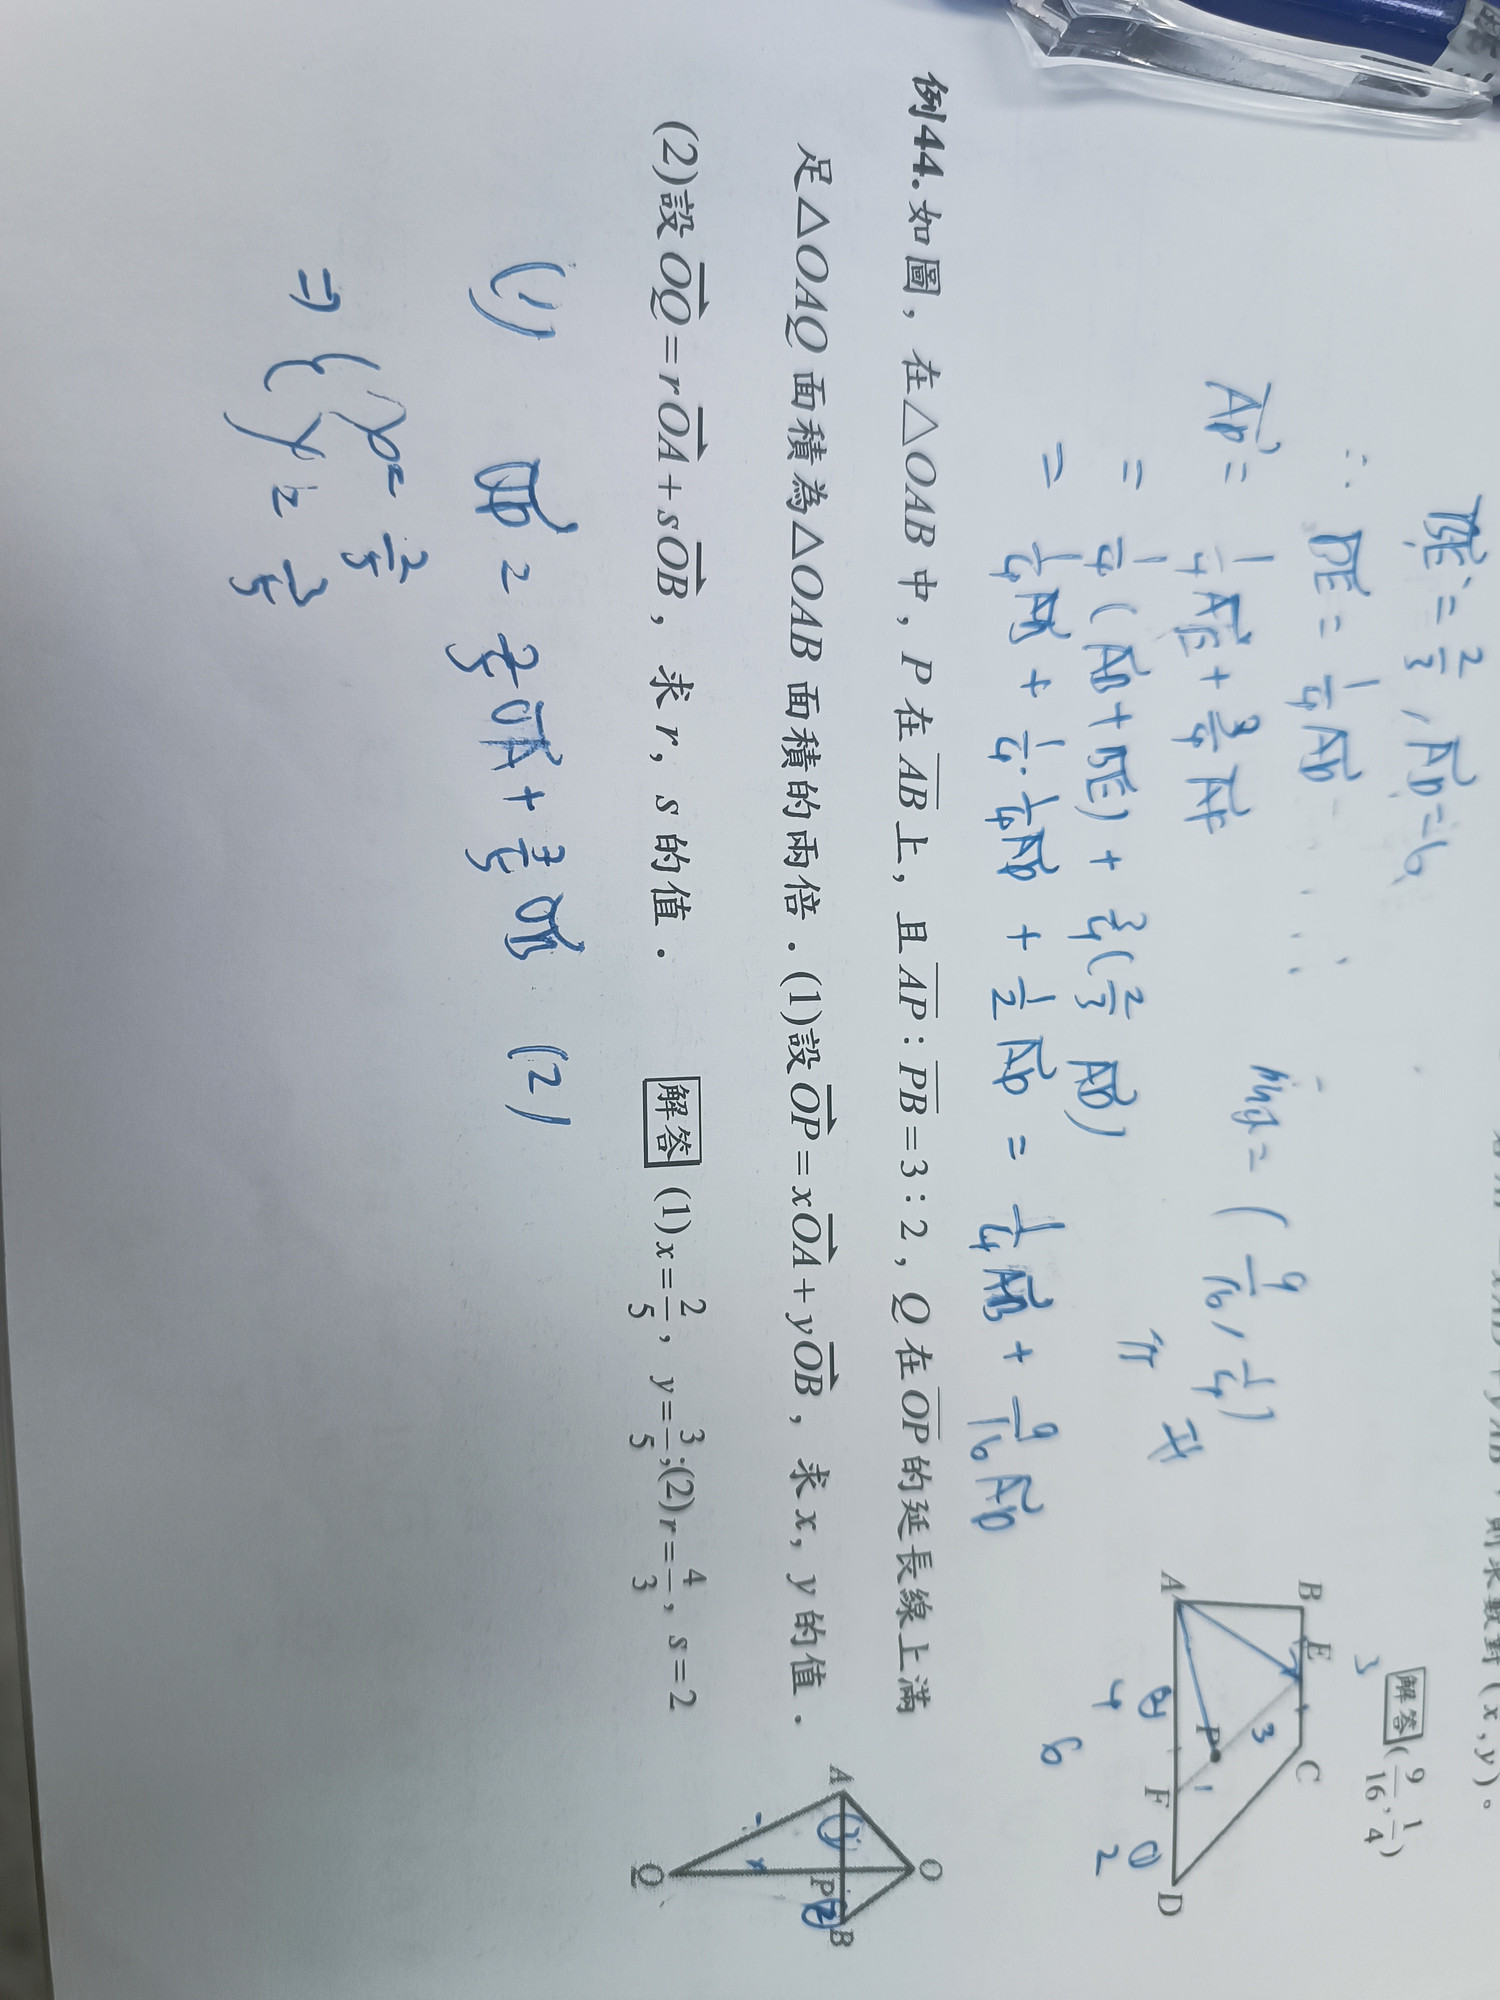 則求數對(x,y)。
解答 (9/16, 1/4)
BE = 2/3, AD = 6
∴ BE = 1/4 AD
AP = 1/4 AE + 3/4 AF
= 1/4 (AB + BE) + 3/4 (2/3 AD)
= 1/4 AB + 1/4 · 1/4 AD + 1/2 AD = 1/4 AB + 9/16 AD
= (9/16, 1/4)
B E C
3
3
P 1
A F D
4 2
6
例44.如圖，在△OAB中，P在AB上，且AP：PB=3：2，Q在OP的延長線上滿
足△OAQ面積為△OAB面積的兩倍．(1)設OP=xOA+yOB，求x，y的值．
(2)設OQ=rOA+sOB，求r，s的值．
解答 (1)x=2/5，y=3/5;(2)r=4/3，s=2
O
A P B
Q
(1) OP = 2/5 OA + 3/5 OB (2)
⇒ { x = 2/5
y = 3/5